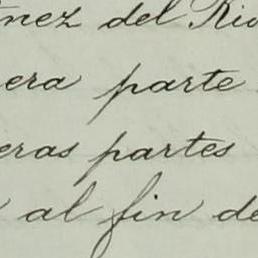 nez del Rio
era parte
eras partes
al fin de